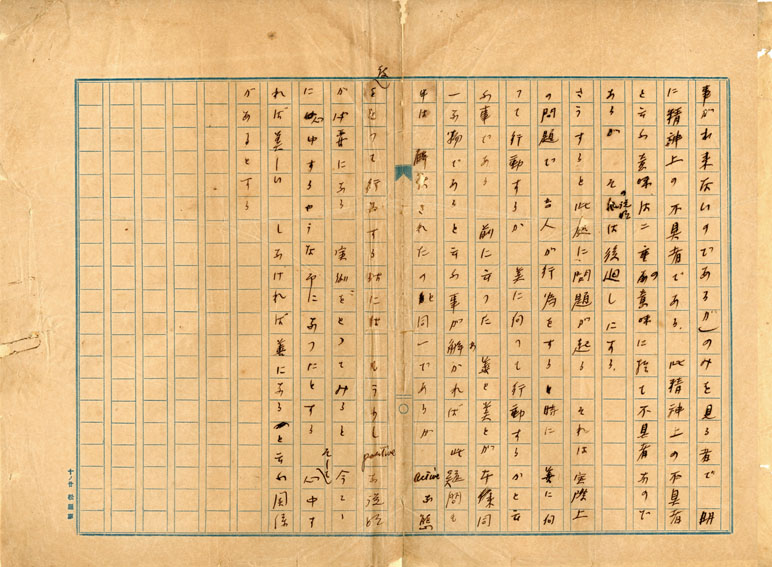 事が出来ないのであるがのみを見る者で明
に精神上の不具者である。此精神上の不具者
と云ふ意味は二重の意味に於て不具者なので
あるが その説明は後廻しにする。
さうすると此処に問題が起る それは実際上
の問題で 吾人が行為をする時に 善に向
つて行動するか 美に向つて行動するかと云
ふ事である 前に云つた 善と美とが 同
一な物であると云ふ事が解かれば 此疑問も
中は 解決されたのと同一であるが active な態
をもつて行為する時には もう少し positive な説
がば 実例をとつてみると 今
に心中するやうな事になつたとする そして 心中す
れば美しい しなければ善になる と云ふ関係
があるとする
十ノ廿